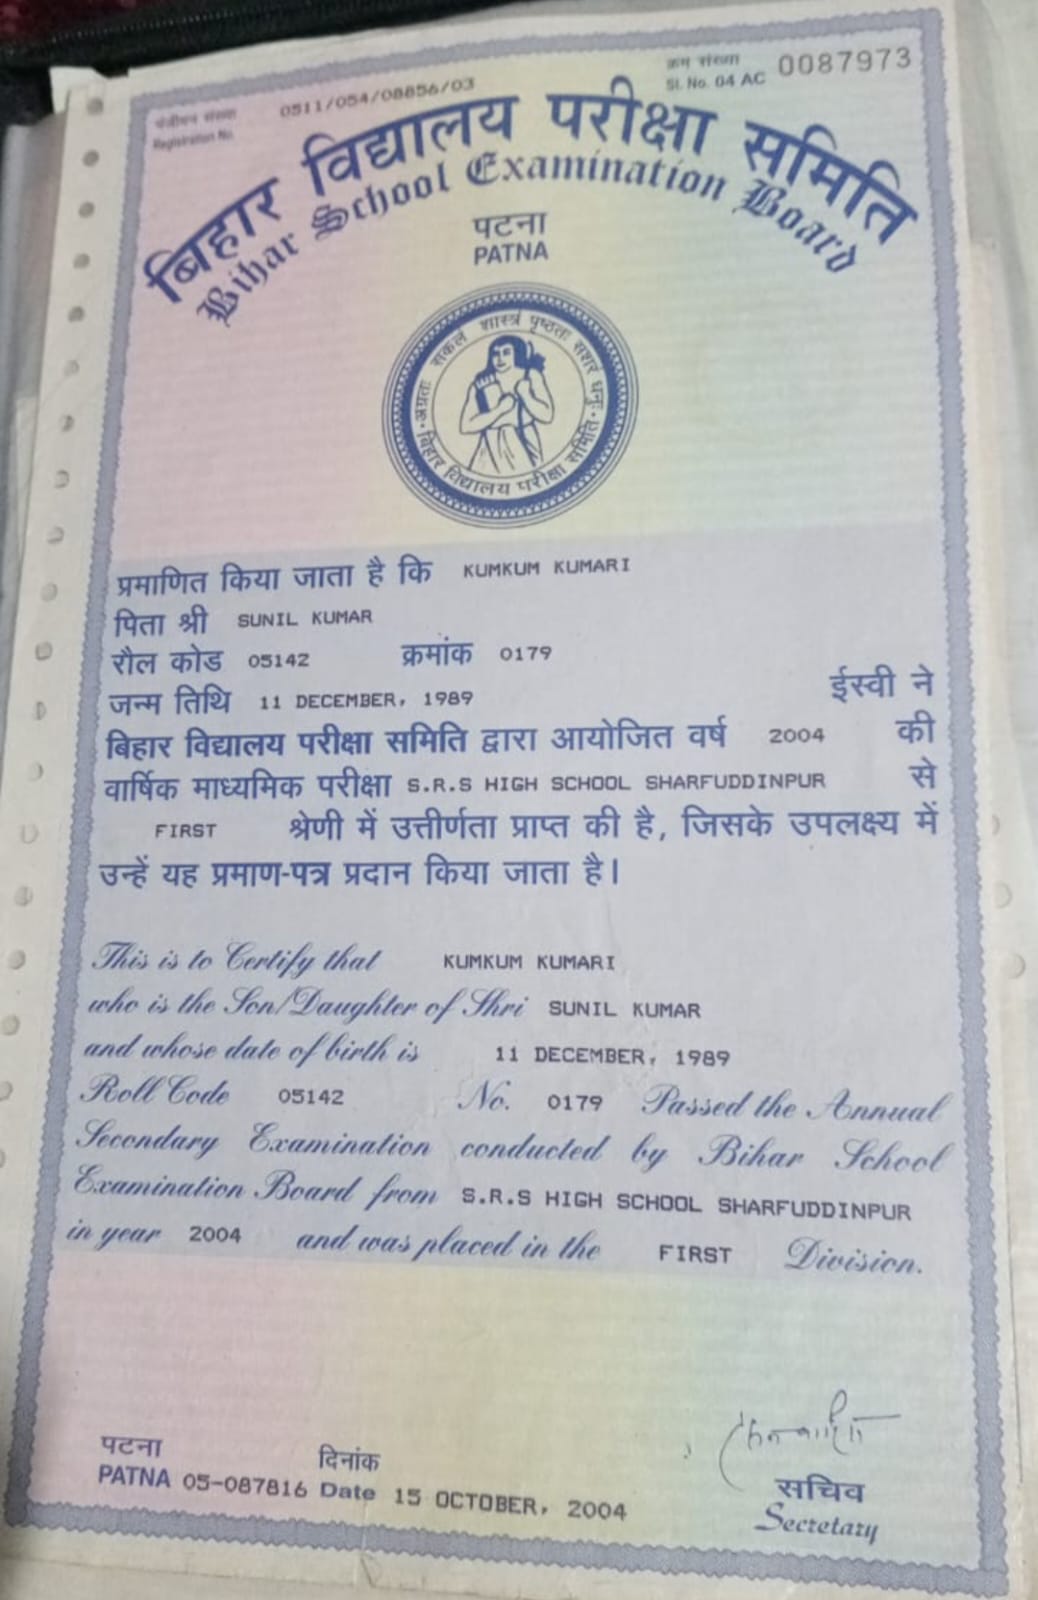 पंजीयन संख्या
Registration No.
0511/054/08856/03
क्रम संख्या
Sl. No. 04 AC 0087973
बिहार विद्यालय परीक्षा समिति
Bihar School Examination Board
पटना
PATNA
अग्रतः सकलं शास्त्रं पृष्ठतः सशरं धनुः
बिहार विद्यालय परीक्षा समिति
प्रमाणित किया जाता है कि KUMKUM KUMARI
पिता श्री SUNIL KUMAR
रौल कोड 05142 क्रमांक 0179
जन्म तिथि 11 DECEMBER, 1989 ईस्वी ने
बिहार विद्यालय परीक्षा समिति द्वारा आयोजित वर्ष 2004 की
वार्षिक माध्यमिक परीक्षा S.R.S HIGH SCHOOL SHARFUDDINPUR से
FIRST श्रेणी में उत्तीर्णता प्राप्त की है, जिसके उपलक्ष्य में
उन्हें यह प्रमाण-पत्र प्रदान किया जाता है।
This is to Certify that KUMKUM KUMARI
who is the Son/Daughter of Shri SUNIL KUMAR
and whose date of birth is 11 DECEMBER, 1989
Roll Code 05142 No. 0179 Passed the Annual
Secondary Examination conducted by Bihar School
Examination Board from S.R.S HIGH SCHOOL SHARFUDDINPUR
in year 2004 and was placed in the FIRST Division.
पटना
PATNA 05-087816
दिनांक
Date 15 OCTOBER, 2004
सचिव
Secretary